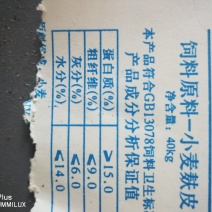 饲料原料—小麦麸皮
净含量：40kg
本产品符合GB13078饲料卫生标
产品成分分析保证值
蛋白质(%) ≥15.0
粗纤维(%) ≤9.0
灰分(%) ≤6.0
水分(%) ≤14.0
小麦
Plus
MMILUX